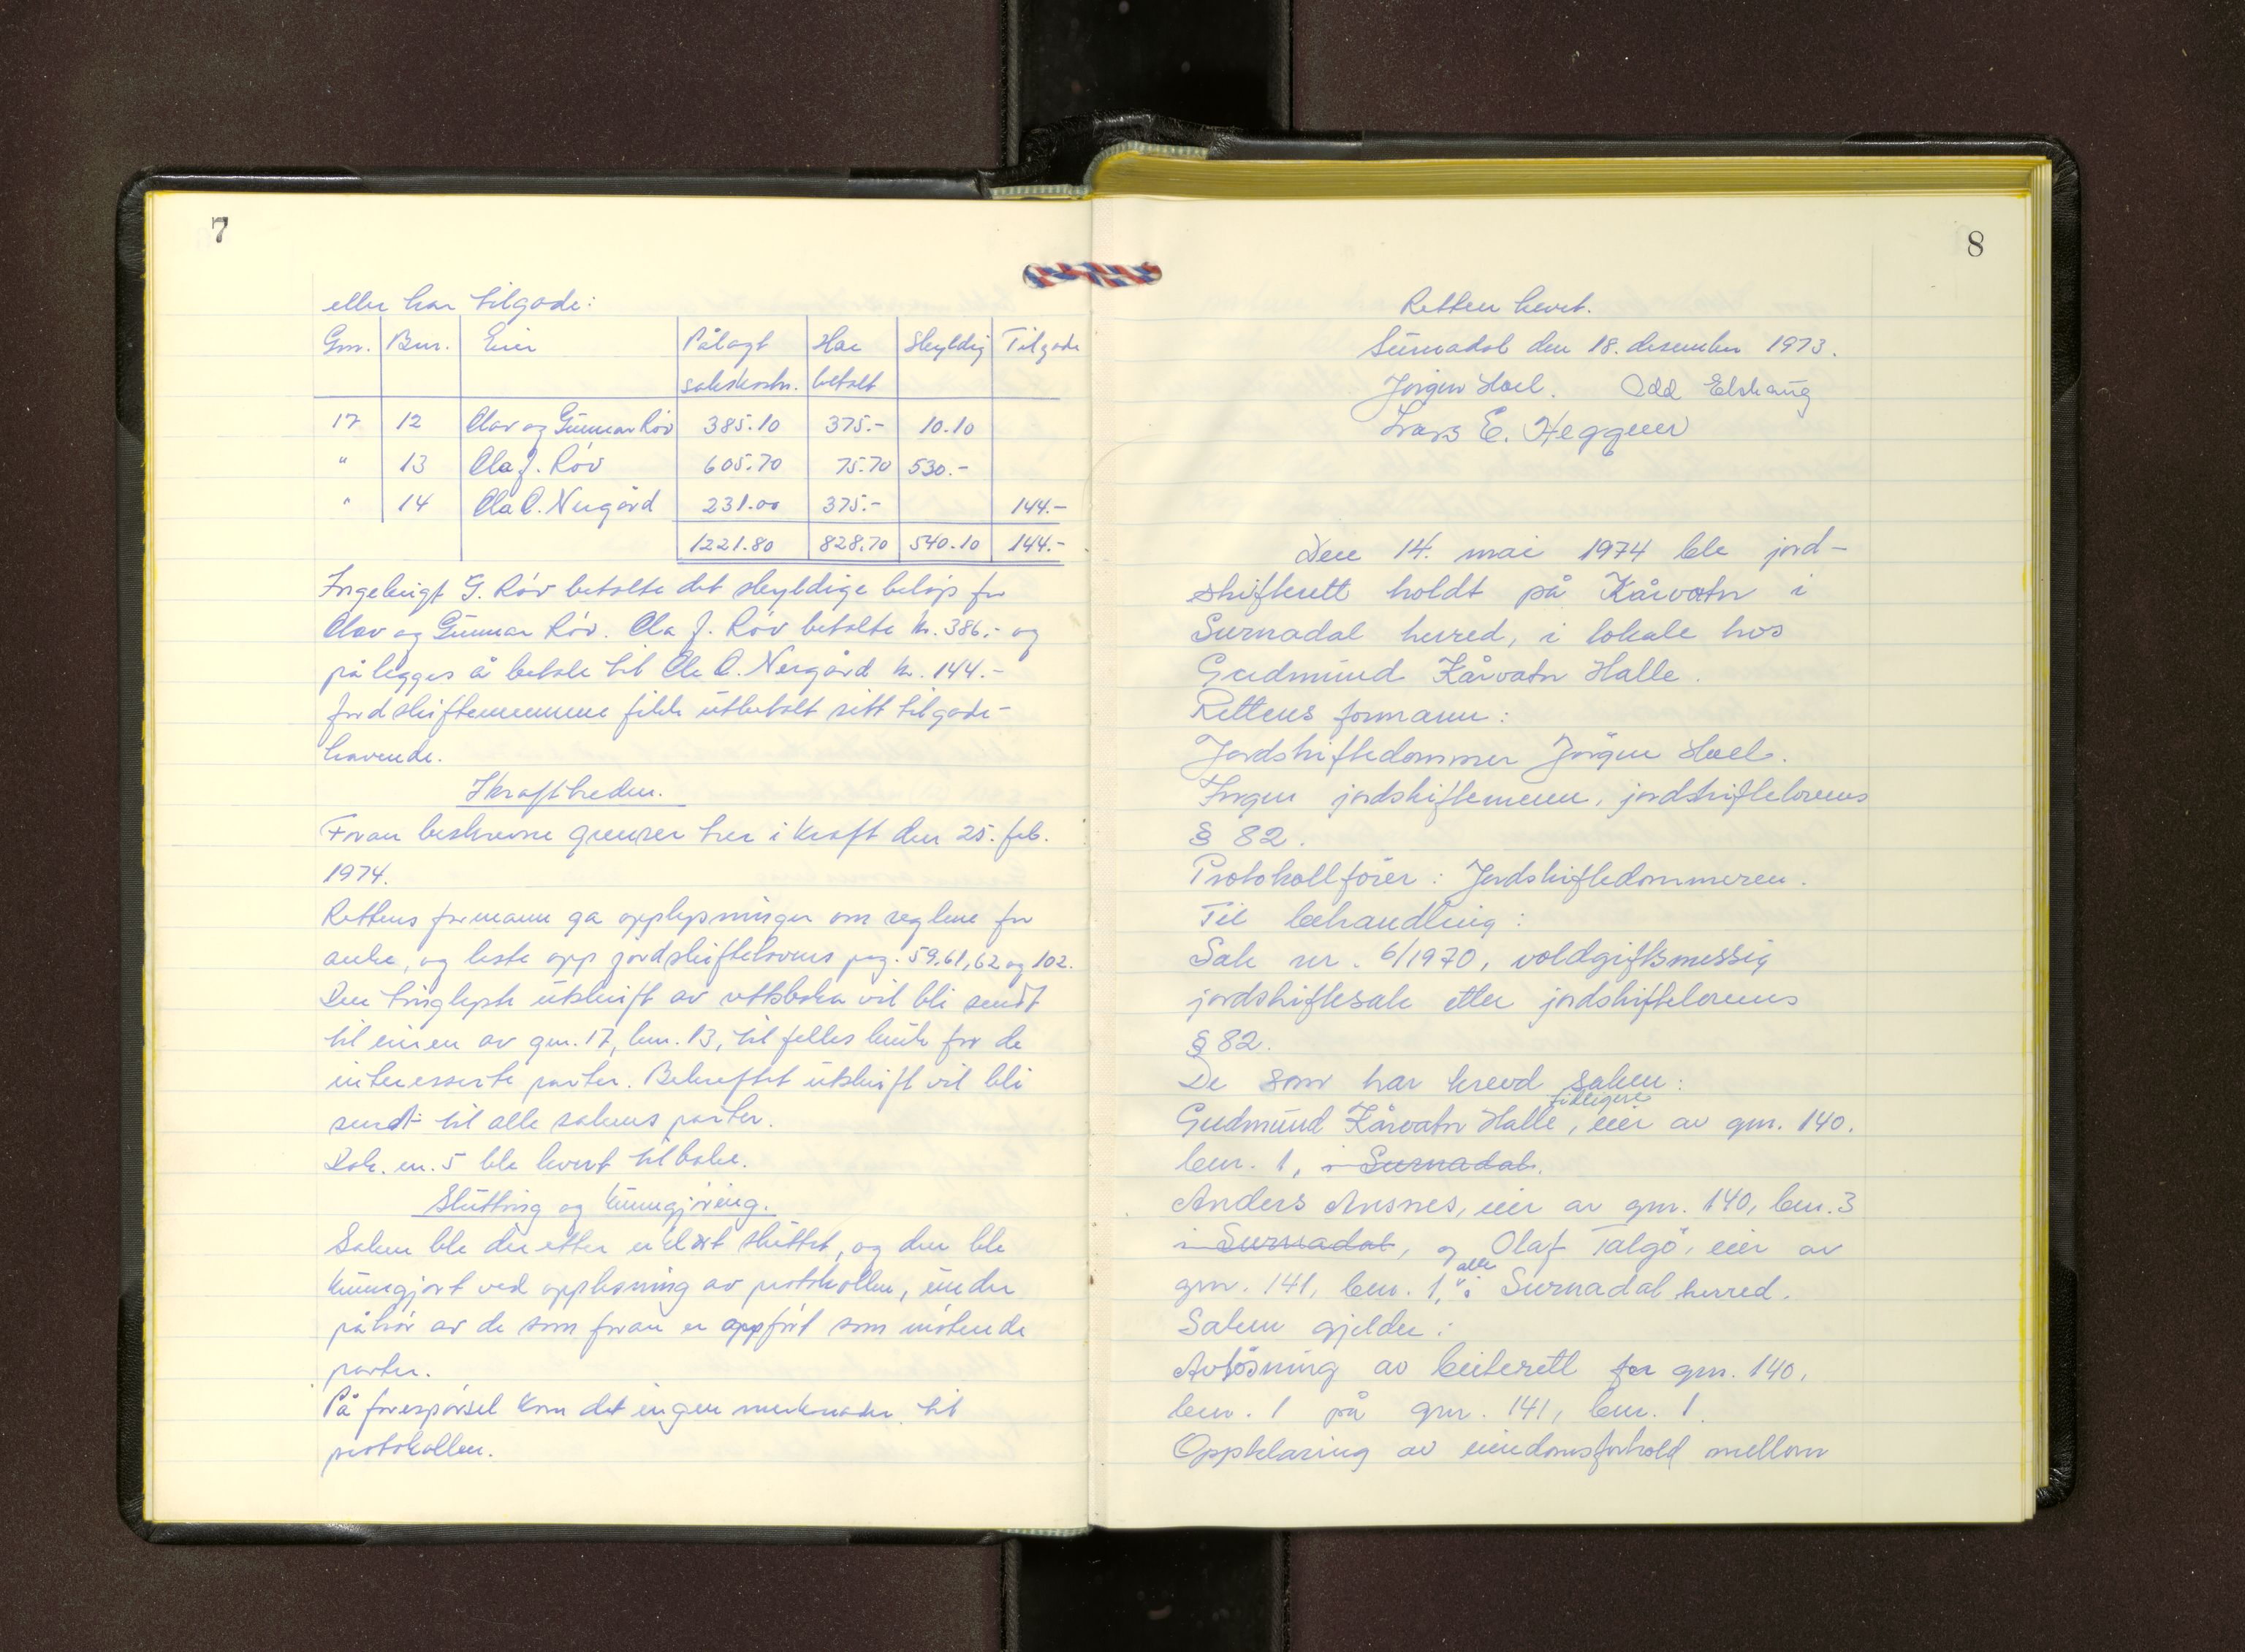 7
eller har tilgode:
Gnr. Bnr. Eier Pålagt Har Skyldig Tilgode
sakskostn. betalt
17 12 Olav og Gunnar Röv 385.10 375.- 10.10
" 13 Ola J. Röv 605.70 75.70 530.-
" 14 Ola O. Nergård 231.00 375.- 144.-
1221.80 828.70 540.10 144.-
Ingebrigt G. Röv betalte det skyldige belöp for
Olav og Gunnar Röv. Ola J. Röv betalte kr. 386,- og
pålegges å betale til Ola O. Nergård kr. 144.-
Jordskiftemennene fikk utbetalt sitt tilgode-
havende.
Ikrafttreden.
Foran beskrevne grenser trer i kraft den 25. feb.
1974.
Rettens formann ga opplysninger om reglene for
anke, og leste opp jordskiftelovens prg. 59, 61, 62 og 102.
Den tinglyste utskrift av rettsboka vil bli sendt
til eieren av gnr. 17, bnr. 13, til felles bruk for de
interesserte parter. Bekreftet utskrift vil bli
sendt til alle sakens parter.
Dok. nr. 5 ble levert tilbake.
Slutting og kunngjöring.
Saken ble deretter erklært sluttet, og den ble
kunngjort ved opplesning av protokollen, under
påhör av de som foran er oppfört som mötende
parter.
På forespörsel kom det ingen merknader til
protokollen.
8
Retten hevet.
Surnadal den 18. desember 1973.
Jörgen Hoel. Odd Elshaug
Lars E. Heggem
Den 14. mai 1974 ble jord-
skifterett holdt på Kårvatn i
Surnadal herred, i lokale hos
Gudmund Kårvatn Halle.
Rettens formann:
Jordskiftedommer Jörgen Hoel.
Ingen jordskiftemenn, jordskiftelovens
§ 82.
Protokollförer: Jordskiftedommeren.
Til behandling:
Sak nr. 6/1970, voldgiftsmessig
jordskiftesak etter jordskiftelovens
§ 82.
De som har krevd saken:
tidligere
Gudmund Kårvatn Halle, eier av gnr. 140.
bnr. 1, i Surnadal.
Anders Ansnes, eier av gnr. 140, bnr. 3
i Surnadal, og Olaf Talgö, eier av
alle
gnr. 141, bnr. 1, i Surnadal herred.
Saken gjelder:
Avlösning av beiterett for gnr. 140,
bnr. 1 på gnr. 141, bnr. 1.
Oppklaring av eiendomsforhold mellom